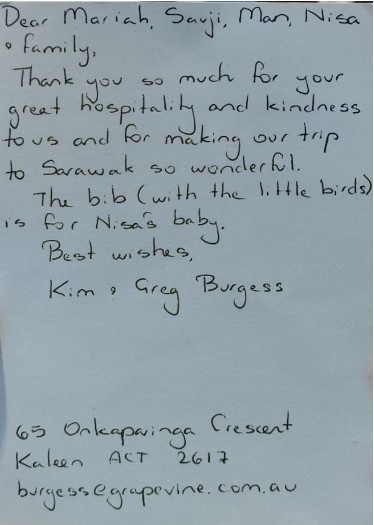 Dear Mariah, Sauji, Man, Nisa
& family,
Thank you so much for your
great hospitality and kindness
to us and for making our trip
to Sarawak so wonderful.
The bib (with the little birds)
is for Nisa's baby.
Best wishes,
Kim & Greg Burgess
65 Onkaparinga Crescent
Kaleen ACT 2617
burgess@grapevine.com.au